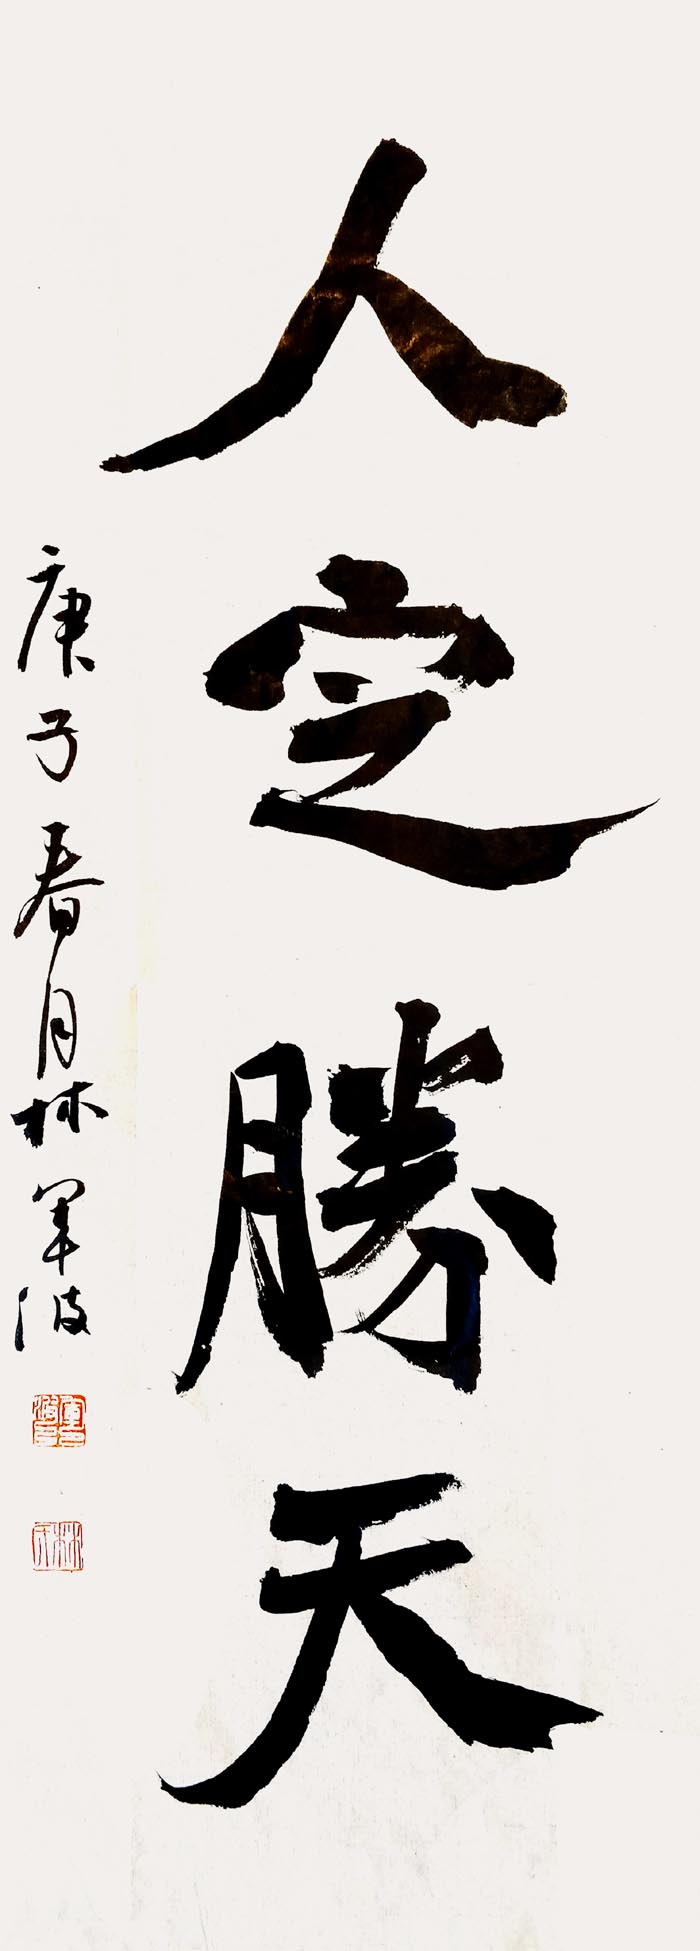 人定勝天
庚子春月林军波